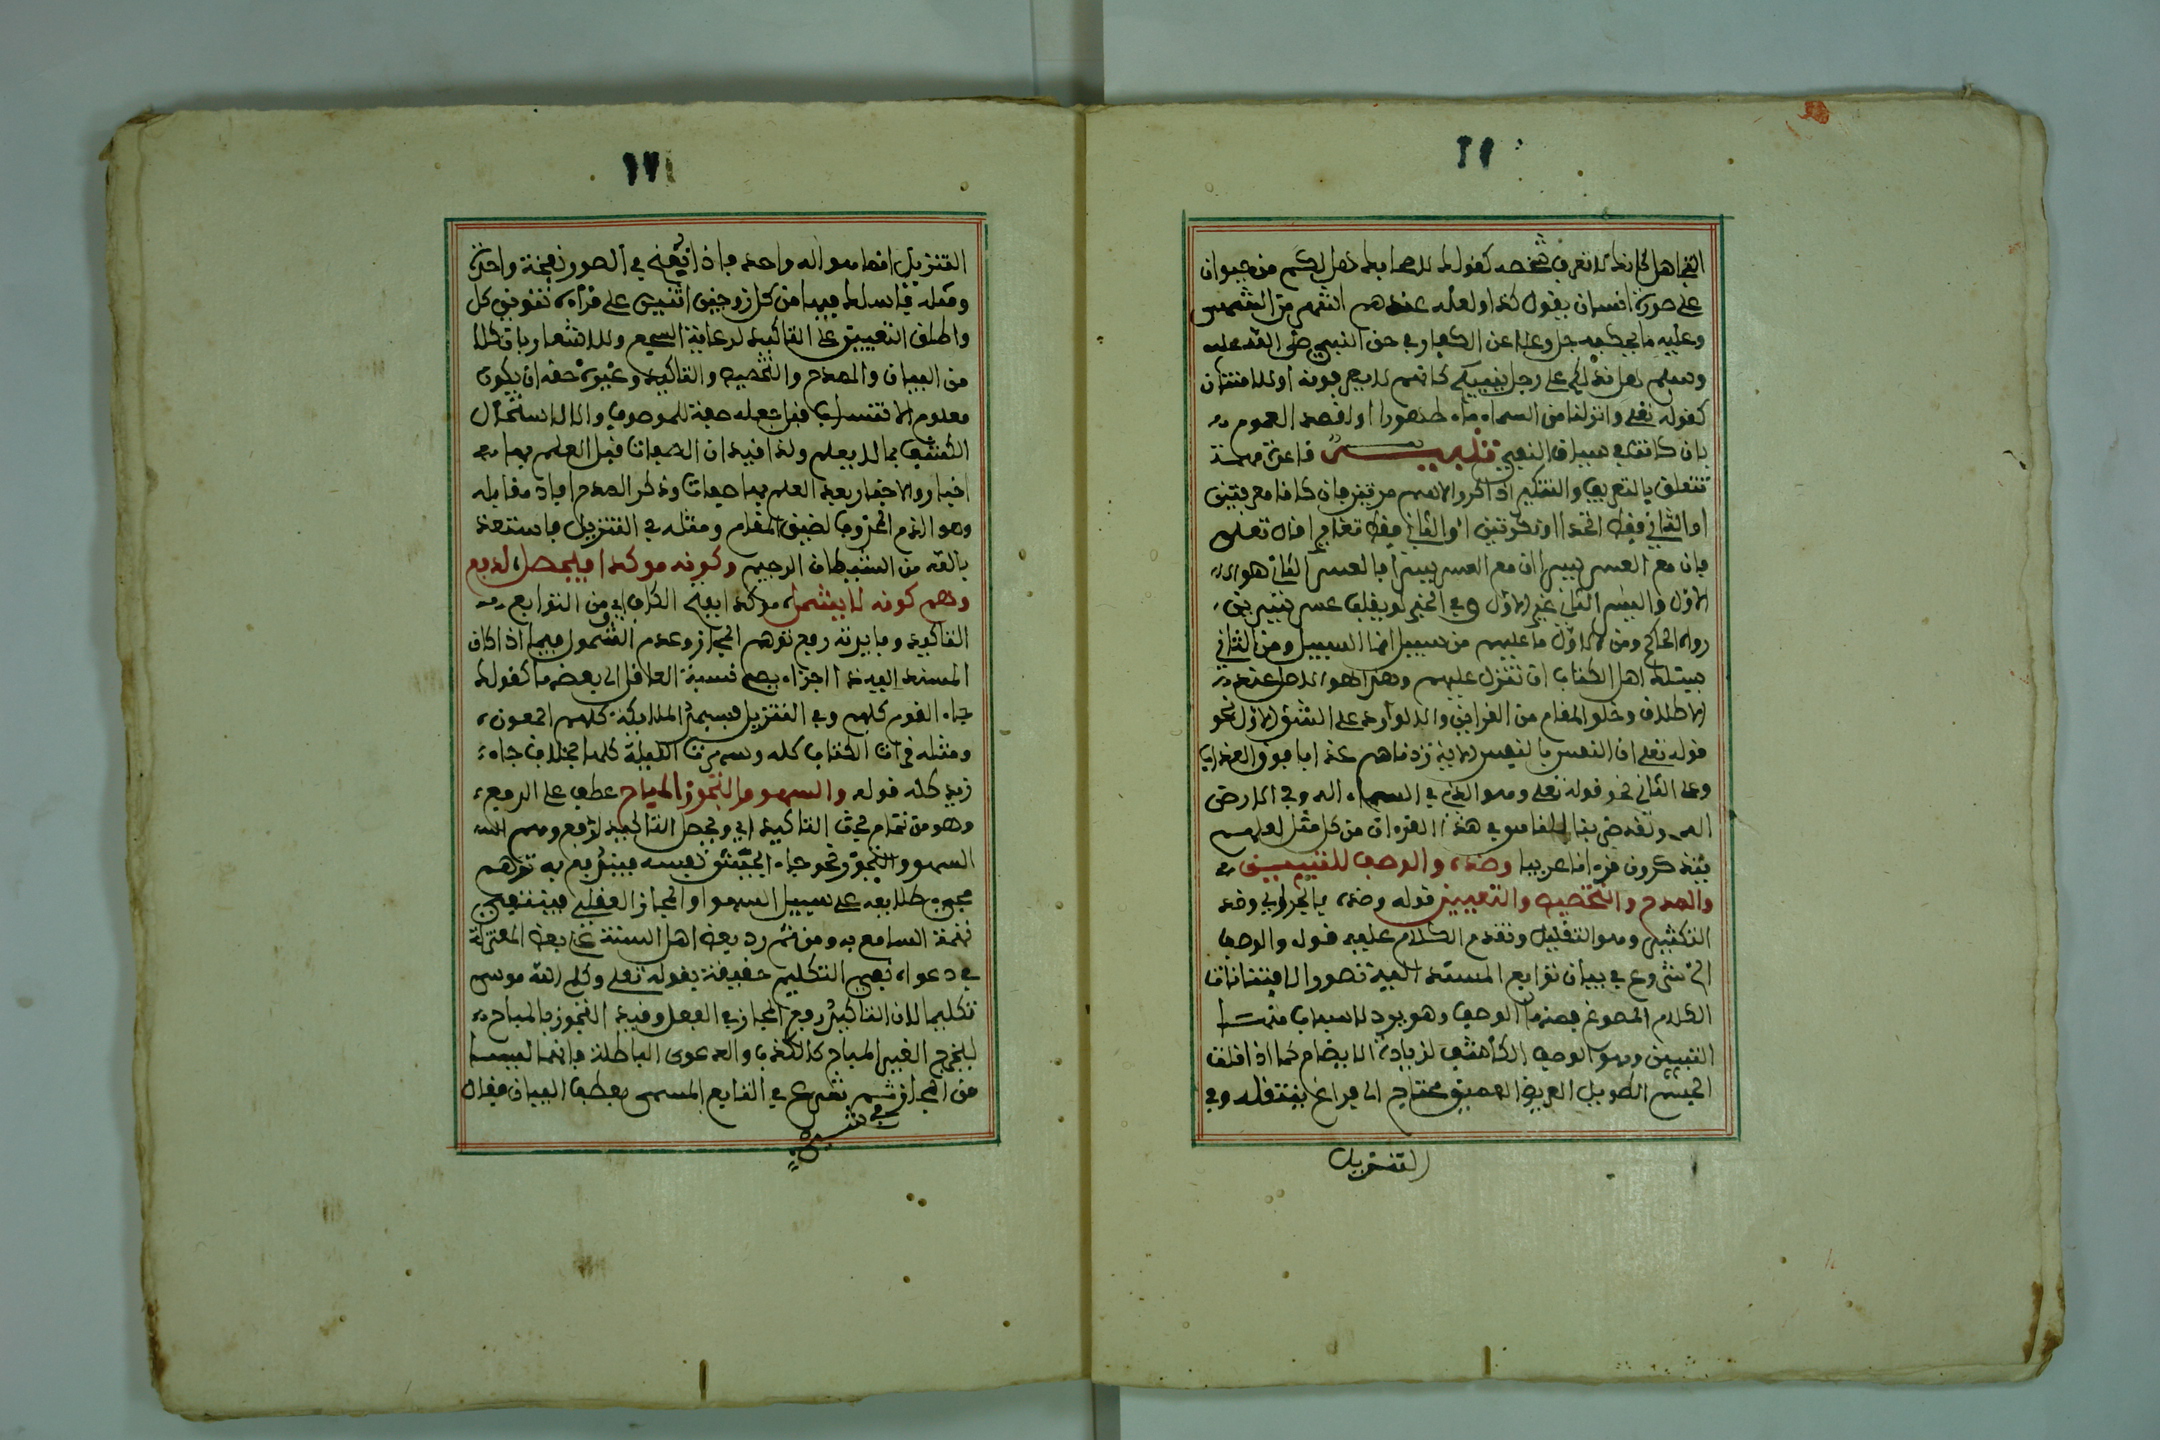 التجاهل كانك لا تعرف شخصه كقولك لاصحابك هل لكم من حيوان
على صورة انسان يقول كذا ولعله عندهم اشهر من الشمس
وعليه ما يحكيه جل وعلا عن الكفار في حق النبي صلى الله عليه
وسلم هل ندلكم على رجل ينبيكم كانهم لا يعرفونه او للامتنان
كقوله تعلى وانزلنا من السماء ماء طهورا او لقصد العموم
بان كانت في سياق النفي تنبيه قاعدة مهمة
تتعلق بالتعريف والتنكير اذا كرر الاسم مرتين فان كانا معرفتين
او الثاني فقط اتحدا او نكرتين او الثاني فقط تغايرا قال تعلى
فان مع العسر يسرا ان مع العسر يسرا فالعسر الثاني هو
الاول واليسر الثاني غير الاول وفي الخبر لن يغلب عسر يسرين
رواه الحاكم ومن الاول ما عليهم من سبيل انما السبيل ومن الثاني
يسئلك اهل الكتاب ان تنزل عليهم وهذا هو الاصل عند
الاطلاق وخلو المقام من القراين والا لوارد على الشق الاول نحو
قوله تعلى ان النفس بالنفس الاية زدناهم عذابا فوق العذاب
وعلى الثاني نحو قوله تعلى وهو الذي في السماء اله وفي الارض
اله ولقد ضربنا للناس في هذا القرءان من كل مثل لعلهم
يتذكرون قرءانا عربيا وضده والوصف للتبيين
والمدح والتخصيص والتعيين قوله وضده بالجر اي وضد
التكثير وهو التقليل وتقدم الكلام عليه قوله والوصف
الخ شروع في بيان توابع المسند اليه نحو والافتنانات
الكلام المصوغ فمنها الوصف وهو يرد لاسباب منها
التبيين وهو الوصف الكاشف لزيادة الايضاح كما اذا قلت
الجسم الطويل العريض العميق محتاج الى فراغ يشغله وفي
التنزيل
التنزيل انما هو اله واحد فاذا نفخ في الصور نفخة واحدة
ومثله فاسلك فيها من كل زوجين اثنين على قراءة تنوين كل
واطلق التعيين على التاكيد لرعاية السجع وللاشعار بان كلا
من البيان والمدح والتخصيص والتاكيد وغيره حقه ان يكون
معلوم الانتساب قبل جعله صفة للموصوف والا لاستحال
الكشف بما لا يعلم ولذا قيل ان الصفات قبل العلم بها
اخبار والاخبار بعد العلم بها صفات وذكر المدح افاد مقابله
وهو الذم المحذوف لضيق المقام ومثله في التنزيل فاستعذ
بالله من الشيطان الرجيم وكونه موكدا فيحصل لدفع
وهم كونه لا يشمل موكدا بفتح الكاف اي من التوابع
التاكيد وفايدته رفع توهم المجاز وعدم الشمول فيما اذا كان
المسند اليه ذا اجزاء يصح نسبة العامل الى بعضها كقولك
جاء القوم كلهم وفي التنزيل فسجد الملايكة كلهم اجمعون
ومثله قرات الكتاب كله وسهرت الليلة كلها بخلاف جاء
زيد كله قوله والسهو والتجوز المباح عطف على الرفع
وهو من تمام نكت التاكيد اي ويحصل التاكيد لدفع وهم
السهو والتجوز نحو جاء الجيش نفسه فينتفي به توهم
مجيء طلايعه على سبيل السهو او المجاز العقلي فينتفي
تهمة السامع به ومن ثم رد بعض اهل السنة على بعض المعتزلة
في دعواه نفي التكليم حقيقة بقوله تعلى وكلم الله موسى
تكليما لان التاكيد رفع المجاز في الفعل وقيد التجوز بالمباح
ليخرج الغير المباح كالكذب والدعوى الباطلة فانهما ليسا
من المجاز ثم شرع في التابع المسمى بعطف البيان فقال